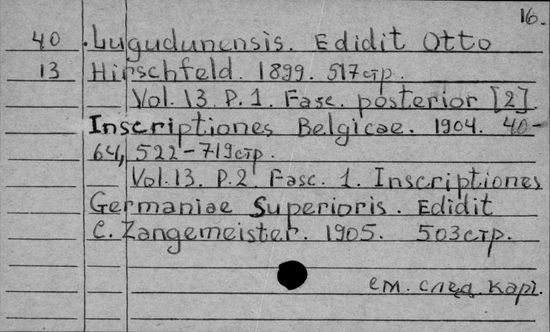 16.
40 .Lugudunensis. Edidit Otto
13 Hirschfeld. 1899. 517стр.
Vol. 13. P. 1. Fasc. posterior [2].
Inscriptiones Belgicae. 1904. 40-
64, 522-719стр.
Vol. 13. P. 2. Fasc. 1. Inscriptiones
Germaniae Superioris. Edidit
C. Zangemeister. 1905. 503стр.
см. след. карт.